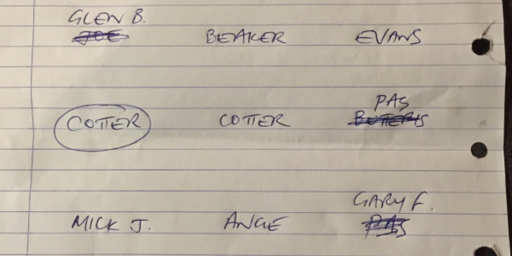 GLEN B.
JOE BEAKER EVANS
PAS
COTTER COTTER BUTTERIS
GARY F.
MICK J. ANGE PAS